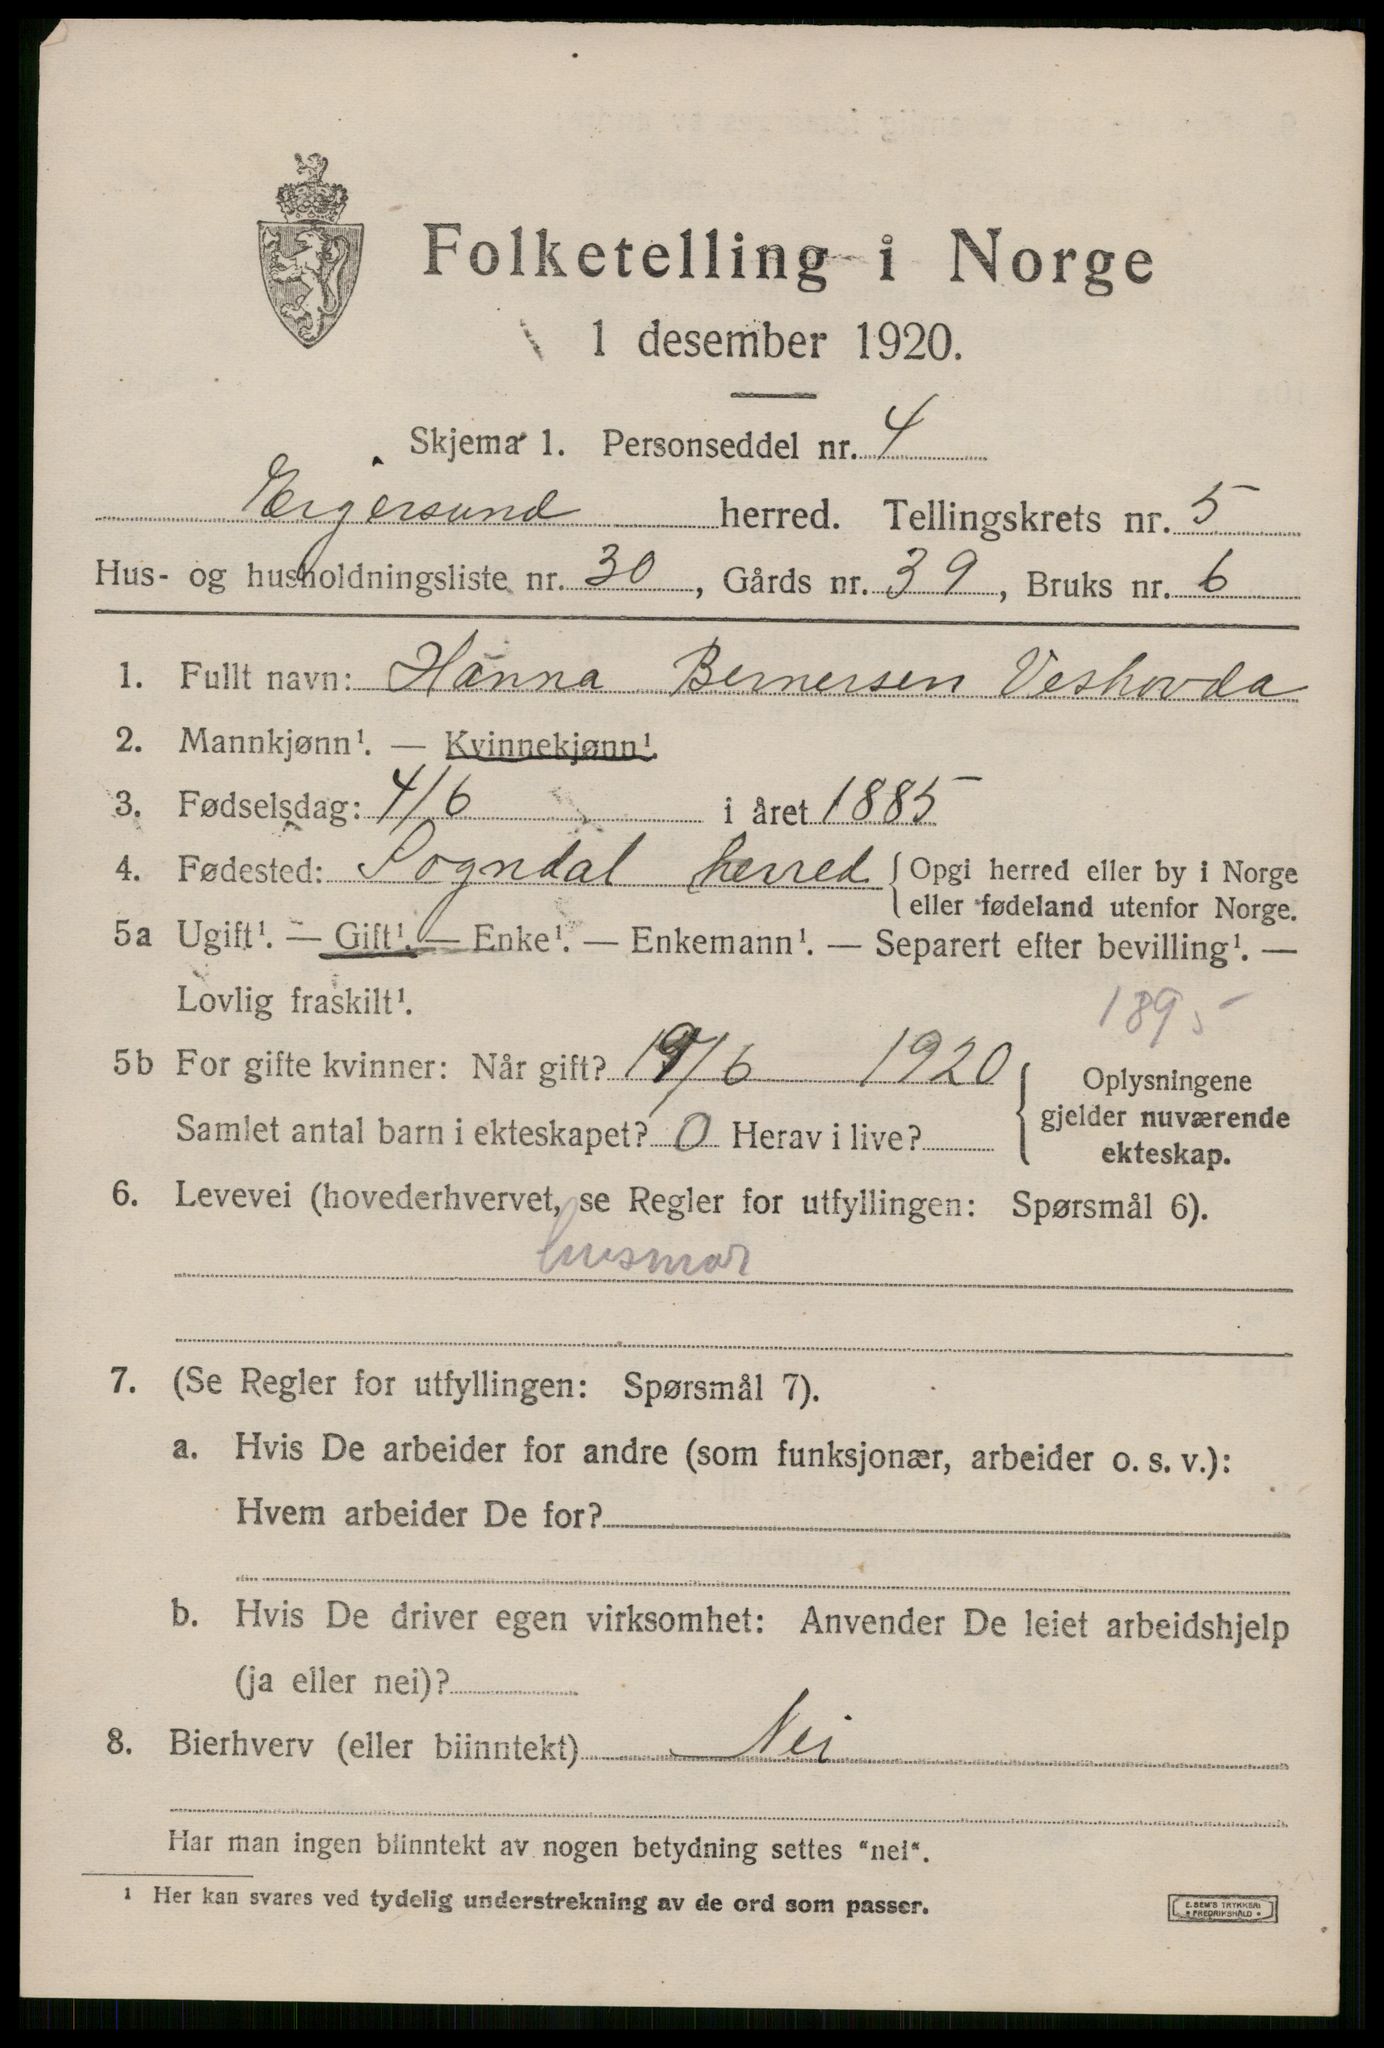 Folketelling i Norge
1 desember 1920.
Skjema 1. Personseddel nr. 4
Egersund herred. Tellingskrets nr. 5
Hus- og husholdningsliste nr. 30, Gårds nr. 39, Bruks nr. 6
1. Fullt navn: Hanna Bernersen Veshovda
2. Mannkjønn¹. — Kvinnekjønn¹.
3. Fødselsdag: 4/6 i året 1885
4. Fødested: Sogndal herred { Opgi herred eller by i Norge
eller fødeland utenfor Norge.
5a Ugift¹. — Gift¹. — Enke¹. — Enkemann¹. — Separert efter bevilling¹. —
Lovlig fraskilt¹. 1895
5b For gifte kvinner: Når gift? 19/6 1920
Samlet antal barn i ekteskapet? 0 Herav i live?
{ Oplysningene
gjelder nuværende
ekteskap.
6. Levevei (hovederhvervet, se Regler for utfyllingen: Spørsmål 6).
husmor
7. (Se Regler for utfyllingen: Spørsmål 7).
a. Hvis De arbeider for andre (som funksjonær, arbeider o. s. v.):
Hvem arbeider De for?
b. Hvis De driver egen virksomhet: Anvender De leiet arbeidshjelp
(ja eller nei)?
8. Bierhverv (eller biinntekt) Nei
Har man ingen biinntekt av nogen betydning settes "nei".
¹ Her kan svares ved tydelig understrekning av de ord som passer.
E. SEM'S TRYKKERI
FREDRIKSHALD